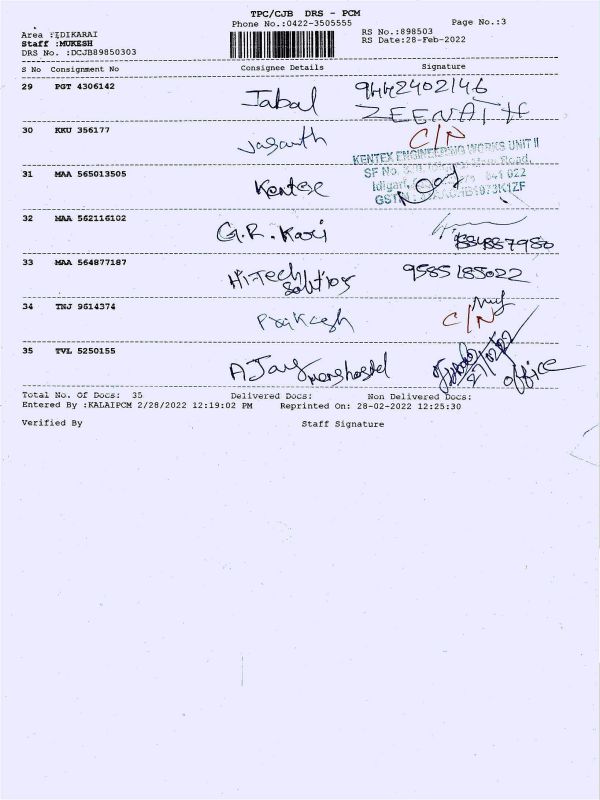 TPC/CJB DRS - PCM
Phone No.:0422-3505555
Page No.:3
Area :IDIKARAI
RS No.:898503
Staff :MUKESH
RS Date:28-Feb-2022
DRS No. :DCJB89850303
S No Consignment No Consignee Details Signature
29 PGT 4306142 Jabal 9442402146
ZEENATH
30 KKU 356177 Jaganth C/N
KENTEX ENGINEERING WORKS UNIT II
SF No. Road,
31 MAA 565013505 Kentex
Idigarai, 641 022
GSTN
32 MAA 562116102 G.R. Kavi
33 MAA 564877187 Hi-Tech 9585185022
Solutions
34 TNJ 9614374 Prakash C/N
35 TVL 5250155 AJay office
Total No. Of Docs: 35 Delivered Docs: Non Delivered Docs:
Entered By :KALAIPCM 2/28/2022 12:19:02 PM Reprinted On: 28-02-2022 12:25:30
Verified By Staff Signature